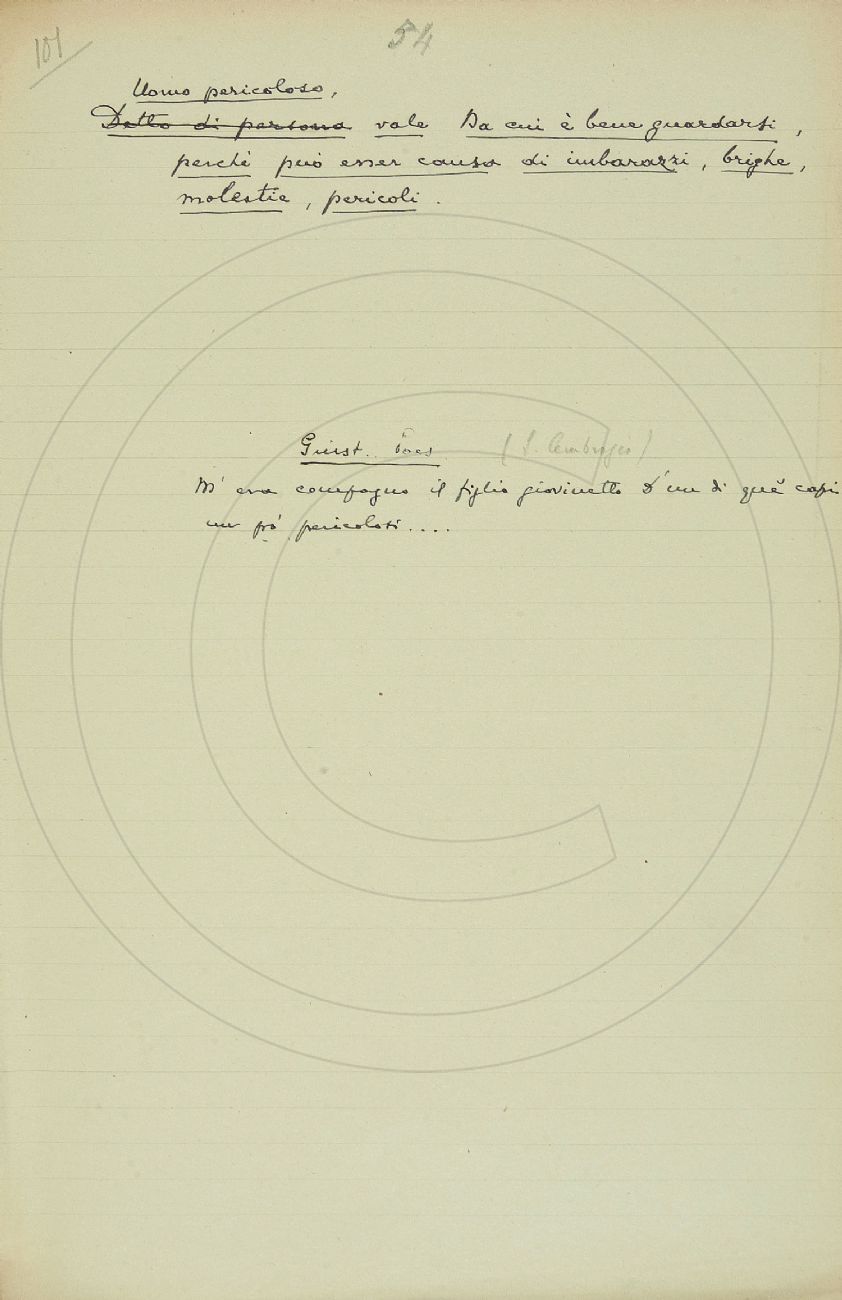 101
54
Uomo pericoloso,
Detto di persona vale Da cui è bene guardarsi,
perchè può esser causa di imbarazzi, brighe,
molestie, pericoli.
Giust. Poes. (S. Ambrogio)
M'era compagno il figlio giovinetto D'un di que' capi
un po' pericolosi....